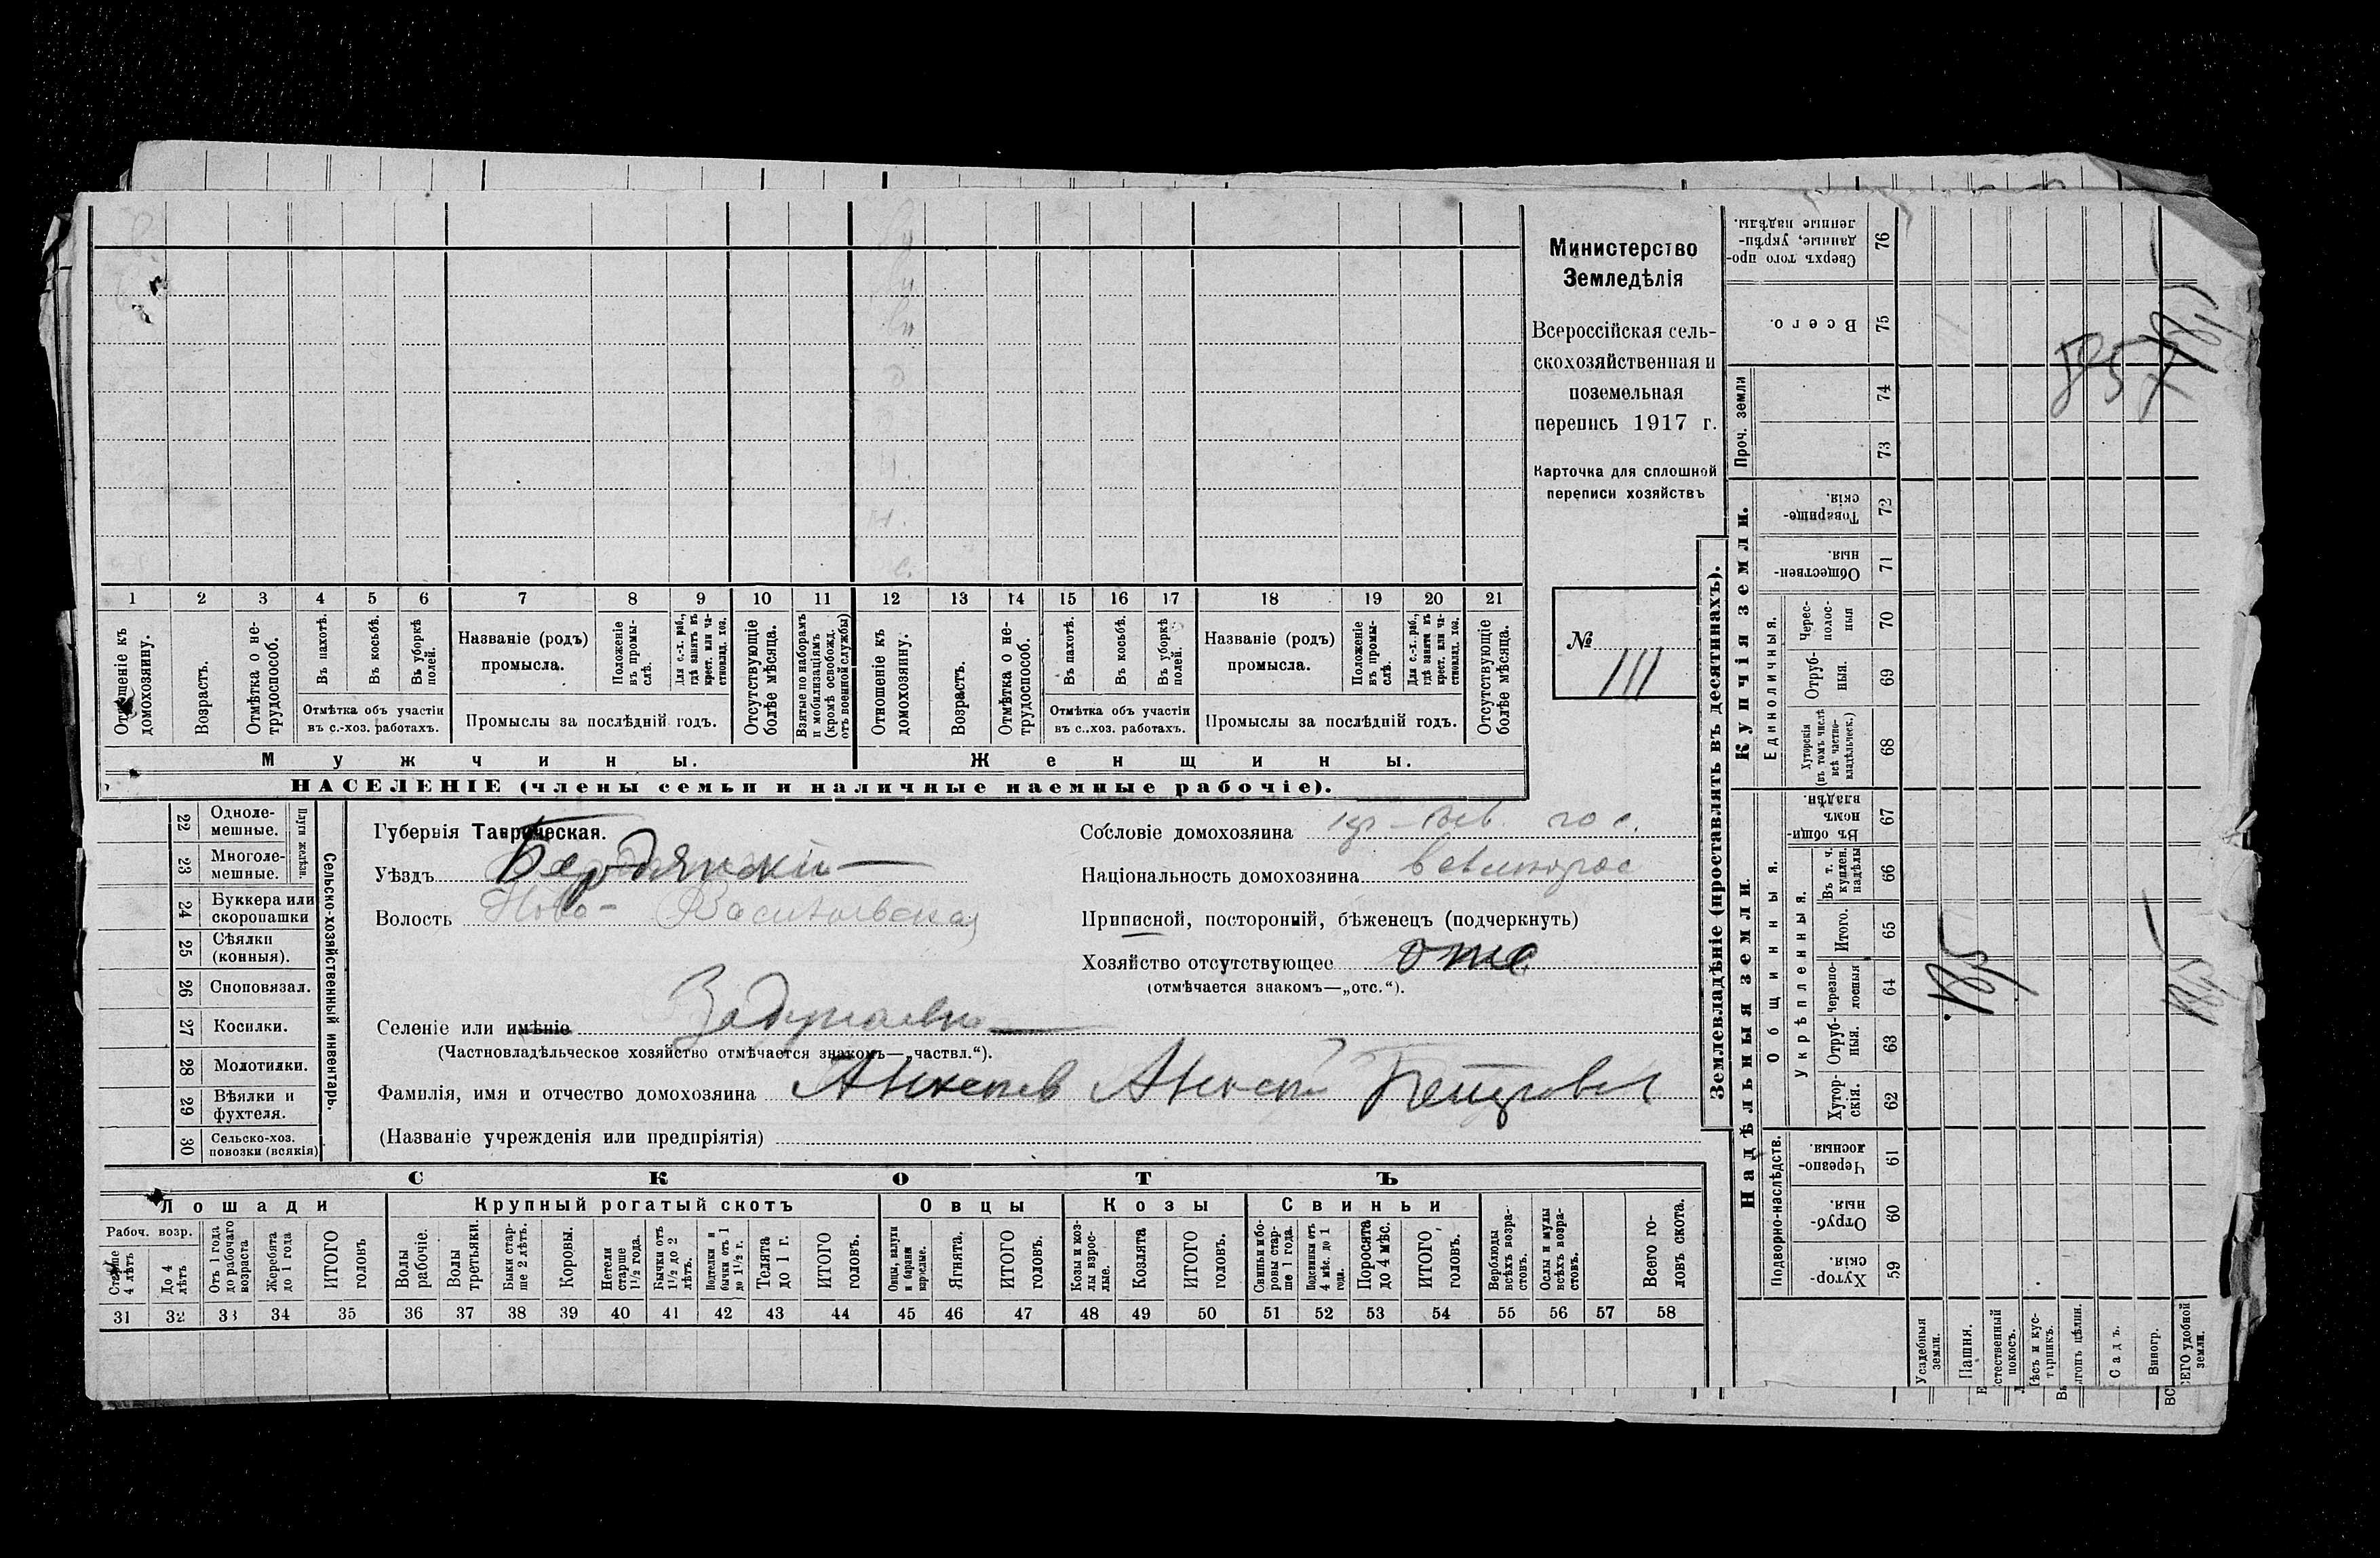 Министерство
Земледѣлія
Всероссійская сель-
скохозяйственная и
поземельная
перепись 1917 г.
Карточка для сплошной
переписи хозяйствъ
№
111
1 2 3 4 5 6 7 8 9 10 11 12 13 14 15 16 17 18 19 20 21
Отношеніе къ домохозяину.
Возрастъ.
Отмѣтка о не-трудоспособ.
Въ пахотѣ.
Въ косьбѣ.
Въ уборкѣ полей.
Отмѣтка объ участіи
въ с.-хоз. работахъ.
Названіе (родъ)
промысла.
Положеніе въ промы-слѣ.
Для с.-х. раб., гдѣ занятъ въ крест. или ча-стновлад. хоз.
Промыслы за послѣдній годъ.
Отсутствующіе болѣе мѣсяца.
Взятые по наборамъ и мобилизаціямъ (кромѣ освобожд. отъ военной службы)
Отношеніе къ домохозяину.
Возрастъ.
Отмѣтка о не-трудоспособ.
Въ пахотѣ.
Въ косьбѣ.
Въ уборкѣ полей.
Отмѣтка объ участіи
въ с..хоз. работахъ.
Названіе (родъ)
промысла.
Положеніе въ промы-слѣ.
Для с.-х. раб., гдѣ занята въ крест. или ча-стновлад. хоз.
Промыслы за послѣдній годъ.
Отсутствующіе болѣе мѣсяца.
Мужчины.
Женщины.
НАСЕЛЕНІЕ (члены семьи и наличные наемные рабочіе).
Сельско-хозяйственный инвентарь.
Плуги желѣзн.
22 Одноле-мешные.
23 Многоле-мешные.
24 Буккера или скоропашки
25 Сѣялки (конныя).
26 Сноповязал.
27 Косилки.
28 Молотилки.
29 Вѣялки и фухтеля.
30 Сельско-хоз. повозки (всякія)
Губернія Таврическая.
Уѣздъ Бердянскій
Волость Ново-Васильевская
Селеніе или имѣніе
(Частновладѣльческое хозяйство отмѣчается знакомъ—„частвл.“).
Фамилія, имя и отчество домохозяина Петрович
(Названіе учрежденія или предпріятія)
Сословіе домохозяина
Національность домохозяина великорос
Приписной, посторонній, бѣженецъ (подчеркнуть)
Хозяйство отсутствующее отс
(отмѣчается знакомъ—„отс.“).
СКОТЪ
Лошади
Крупный рогатый скотъ
Овцы
Козы
Свиньи
Рабоч. возр.
Старше 4 лѣтъ
До 4 лѣтъ
Отъ 1 года до рабочаго возраста
Жеребята до 1 года
ИТОГО головъ
Волы рабочіе.
Волы третьяки.
Быки стар-ше 2 лѣтъ.
Коровы.
Нетели старше 1½ года.
Бычки отъ 1½ до 2 лѣтъ.
Подтелки и бычки отъ 1 до 1½ г.
Телята до 1 г.
ИТОГО головъ.
Овцы, валухи и бараны взрослые.
Ягнята.
ИТОГО головъ.
Козы и коз-лы взрос-лые.
Козлята
ИТОГО головъ.
Свиньи и бо-ровы стар-ше 1 года.
Подсвинки отъ 4 мѣс. до 1 года.
Поросята до 4 мѣс.
ИТОГО головъ.
Верблюды всѣхъ возра-стовъ.
Ослы и мулы всѣхъ возра-стовъ.
Всего го-ловъ скота.
31 32 33 34 35 36 37 38 39 40 41 42 43 44 45 46 47 48 49 50 51 52 53 54 55 56 57 58
Землевладѣніе (проставлять въ десятинахъ).
Надѣльныя земли.
Купчія земли.
Проч. земли
Подворно-наслѣдств.
Общинныя.
Укрѣпленныя.
Единоличныя.
Хутор-скія. 59
Отруб-ныя 60
Черезпо-лосныя. 61
Хутор-скія. 62
Отруб-ныя. 63
черезпо-лосныя 64
Итого. 65
Въ т. ч. куплен. надѣлы 66
Въ общин-номъ владѣн. 67
Хуторскія (въ томъ числѣ всѣ частно-владѣльческ.) 68
Отруб-ныя. 69
Черес-полос-ныя 70
Обществен-ныя. 71
Товарище-скія. 72
73
74
Всего. 75
Сверхъ того про-данные, укрѣп-ленные надѣлы. 76
Усадебныя земли.
Пашня.
Естественный покосъ.
Лѣсъ и кус-тарникъ.
Выгонъ цѣлин.
Садъ.
Виногр.
ВСЕГО удобной земли.
857